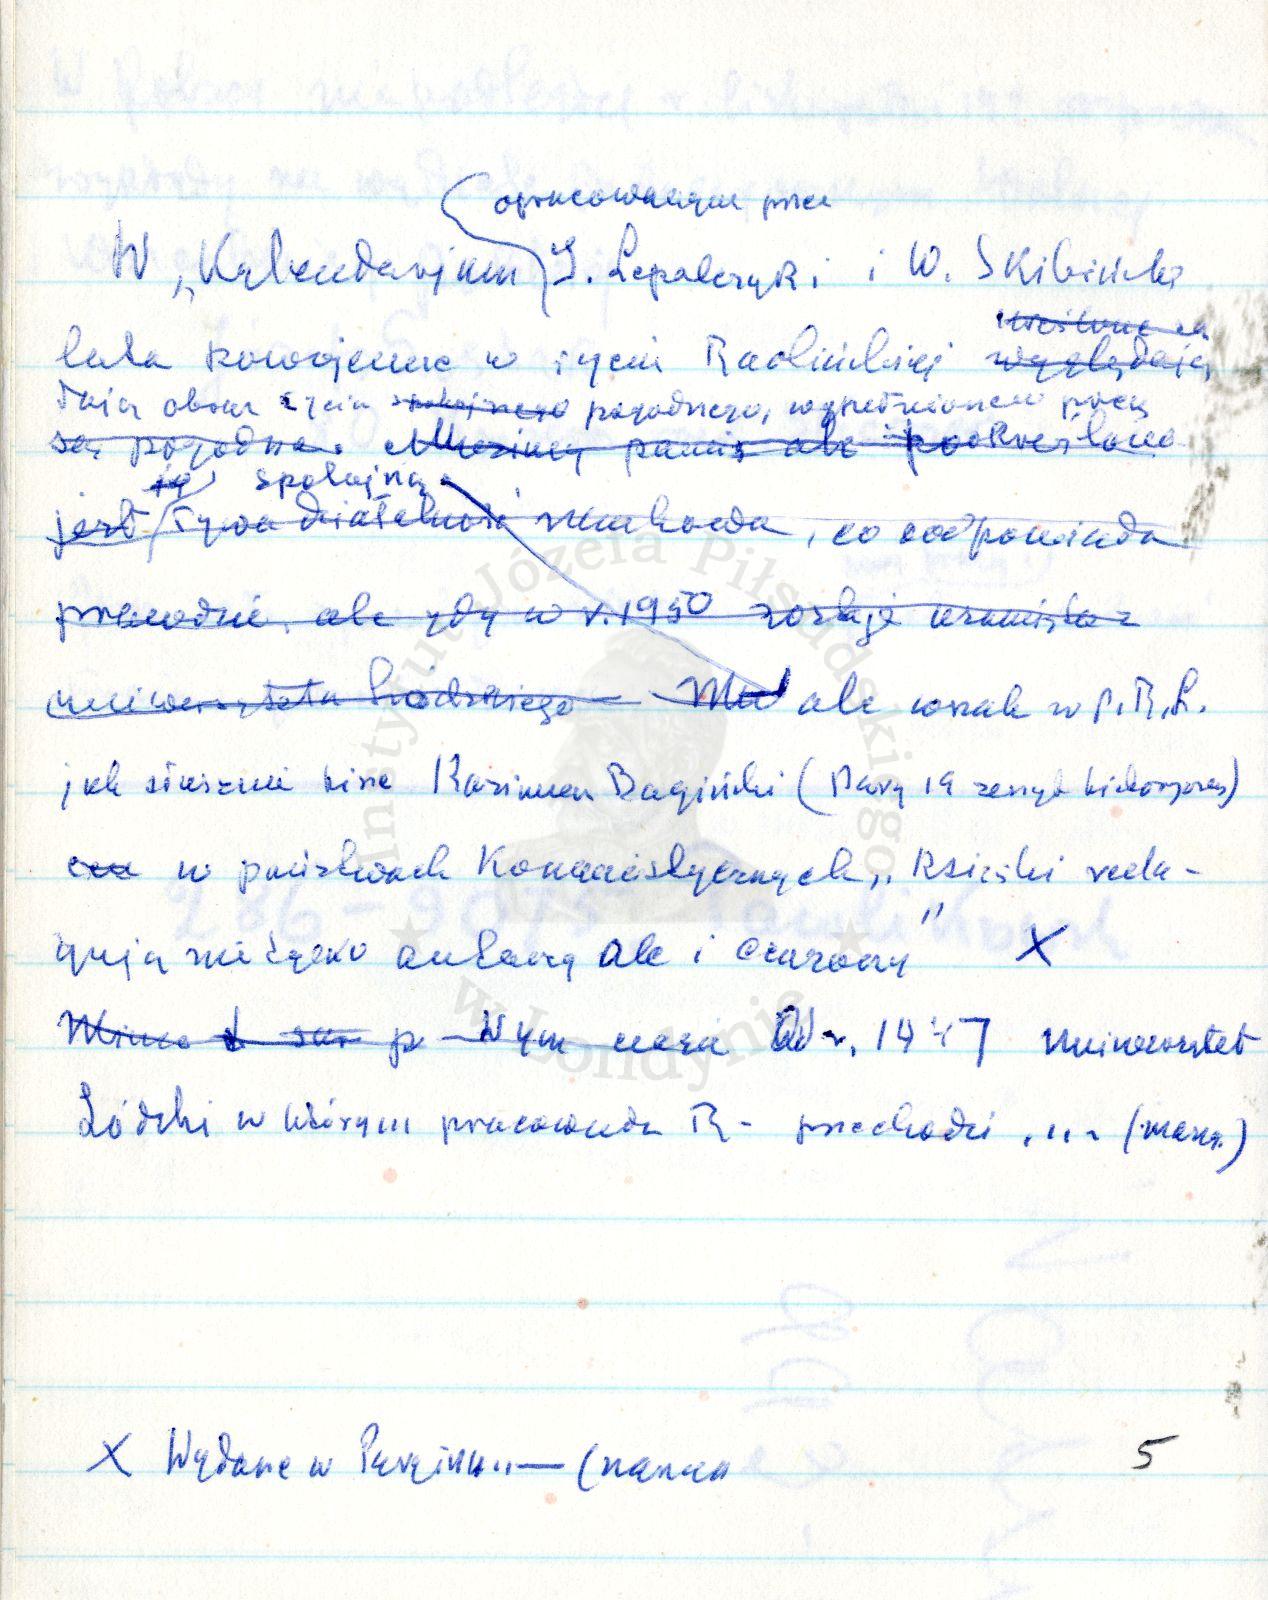 opracowanym przez
W „Kalendarjum J. Lepalczyk i i W. Skibińska
lata powojenne w życiu Radlińskiej wyglądają
dają obraz życia spokojnego pogodnego, wypełnionego pracą
są pogodne. ale podkreślona
ją spokojną
jest żywa działalność naukowa, co odpowiada
prawdzie, ale gdy w r. 1950 zostaje usunięta z
uniwersytetu Łódzkiego ale wszak w P.R.L.
jak słusznie pisze Kazimierz Bagiński (Paryż 19 zeszyt historyczny)
w państwach Komunistycznych „Książki reda-
gują nie tylko autorzy ale i cenzorzy" X
p W tym czasie Od r. 1947 Uniwersytet
Łódzki w którym pracowała R- przechodzi .... (masz.)
X Wydane w Paryżu..— (
5
Instytut Józefa Piłsudskiego w Londynie